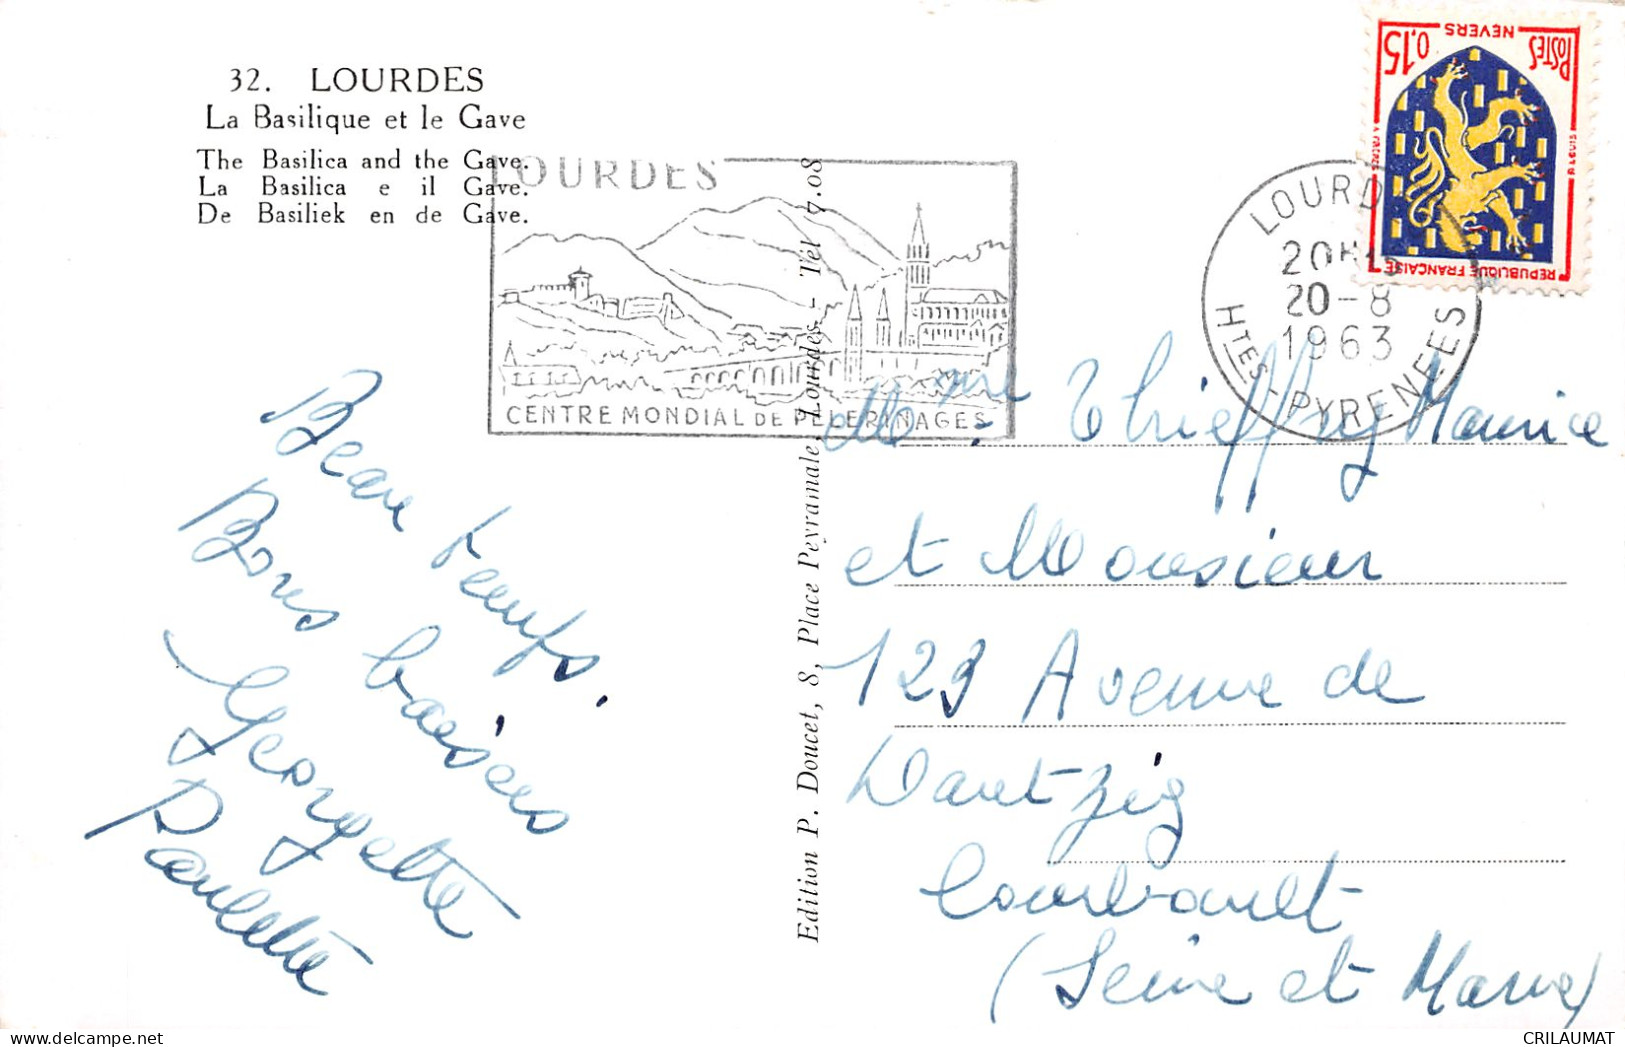 32. LOURDES
La Basilique et le Gave
The Basilica and the Gave.
La Basilica e il Gave.
De Basiliek en de Gave.
LOURDES
CENTRE MONDIAL DE PELERINAGES
Edition P. Doucet, 8, Place Peyramale Lourdes - Tél 7.08
NEVERS
POSTES
0,15
REPUBLIQUE FRANÇAISE
LOURD
20H
20-8
1963
HTES-PYRENEES
Beau temps.
Bons baisers
Georgette
Paulette
Mme Thieffry Maurice
et Monsieur
123 Avenue de
Dantzig
Courtvault
(Seine et Marne)
CRILAUMAT